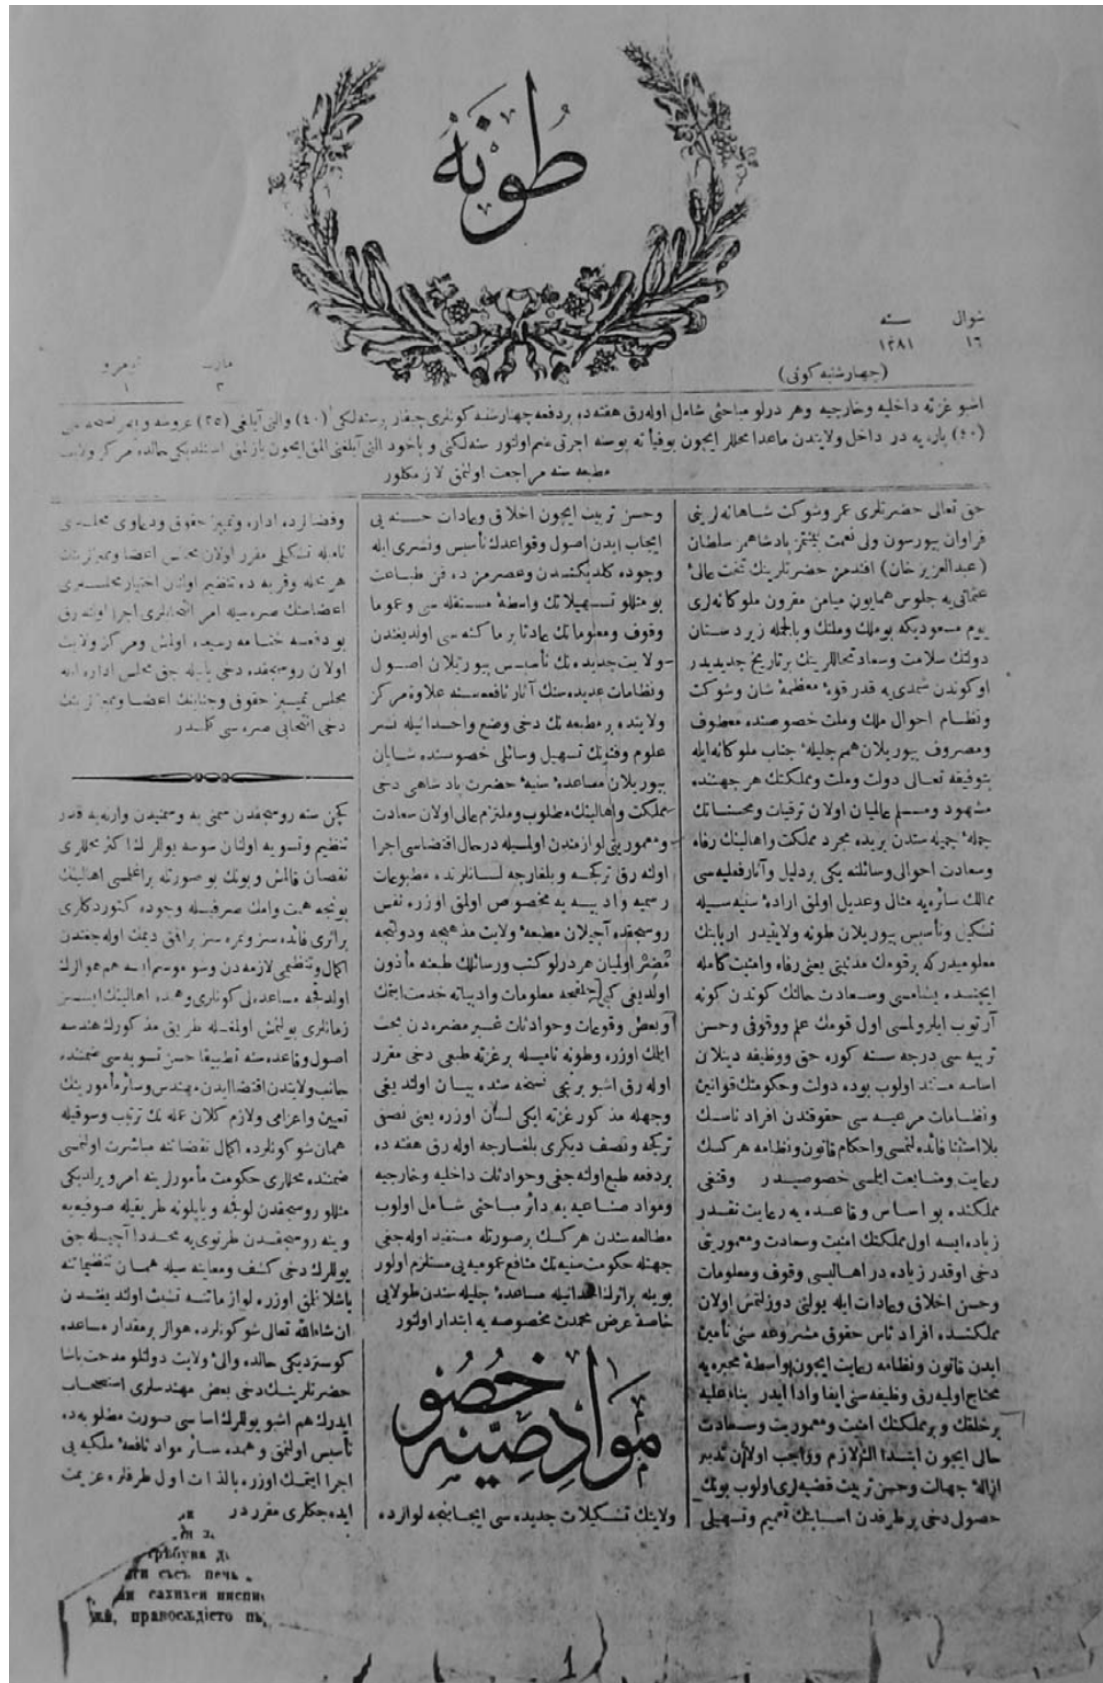 طونه
شوال سنه
١٦ ١٢٨١
مارت نومرو
٣ ١
(چهارشنبه كونی)
اشبو غزته داخلیه وخارجیه وهر درلو مباحثی شامل اوله‌رق هفته‌ده بر دفعه چهارشنبه كونلری چیقار بر سنه‌لكی (٤٠) والتی آیلغی (٢٥) غروشه و بهر نسخه‌سی
(٤٠) پاره‌یه در داخل ولایتدن ماعدا محللر ایچون بوفیأته پوسته اجرتی ضم اولنور سنه‌لكی و یاخود التی آیلغنی المق ایچون یازلمق استندیكی حالده مركز ولایت
مطبعه‌سنه مراجعت اولنمق لازمكلور
حق تعالی حضرتلری عمر وشوكت شاهانه‌لرینی
فراوان بیورسون ولی نعمت بیمنتمز پادشاهمز سلطان
(عبدالعزیز خان) افندمز حضرتلرینك تخت عالئ
عثمانی‌یه جلوس همایون میامن مقرون ملوكانه‌لری
یوم مسعودیكه بوملك وملتك وبالجمله زیردستان
دولتك سلامت وسعادتحاللرینك بر تاریخ جدیدیدر
او كوندن شمدی‌یه قدر قوهٔ معظمهٔ شان وشوكت
ونظام احوال ملك وملت خصوصنده معطوف
ومصروف بیوریلان همم جلیلهٔ جناب ملوكانه ایله
بتوفیقه تعالی دولت وملت ومملكتك هر جهتنده
مشهود ومسلم عالمیان اولان ترقیات ومحسناتك
جملهٔ جمیله‌سندن بریده مجرد مملكت واهالینك رفاه
وسعادت احوالی وسائلنه یكی بر دلیل وآثار فعلیه‌سی
ممالك سائره‌یه مثال وعدیل اولمق ارادهٔ سنیه‌سیله
تشكیل وتأسیس بیوریلان طونه ولایتیدر اربابنك
معلومیدر كه بر قومك مدنیتی یعنی رفاه وامنیت كامله
ایچنده یشامسی وسعادت حالك كوندن كونه
آرتوب ایلرولمسی اول قومك علم ووقوفی وحسن
تربیه‌سی درجه‌سنه كوره حق ووظیفه دینلان
اساسه مستند اولوب بوده دولت وحكومتك قوانین
ونظامات مرعیه‌سی حقوقندن افراد ناسك
بلا استثنا فائده‌لنمسی واحكام قانون ونظامه هركسك
رعایت ومتابعت ایلمسی خصوصیدر وقنغی
مملكتده بو اساس وقاعده‌یه رعایت نقدر
زیاده ایسه اول مملكتك امنیت وسعادت ومعموریتی
دخی اوقدر زیاده‌در اهالیسی وقوف ومعلومات
وحسن اخلاق وعادات ایله یولنی دوزلتمش اولان
مملكتده افراد ناس حقوق مشروعه‌سنی تأمین
ایدن قانون ونظامه رعایت ایچون واسطهٔ مجبره‌یه
محتاج اولمیه‌رق وظیفه‌سنی ایفا وادا ایدر بناء علیه
بر خلقك و بر مملكتك امنیت ومعموریت وسعادت
حالی ایچون ابتدا الك لازم وواجب اولان تدبیر
ازالهٔ جهالت وحسن تربیت قضیه‌لری اولوب بونك
حصولی دخی بر طرفدن اسبابنك تعمیم وتسهیلی
وحسن تربیت ایچون اخلاق وعادات حسنه‌یی
ایجاب ایدن اصول وقواعدك تأسیس ونشری ایله
وجوده كلدیكندن وعصرمزده فن طباعت
بو مثللو تسهیلاتك واسطهٔ مستقله‌سی وعموما
وقوف ومعلوماتك عادتا بر ماكنه‌سی اولدیغندن
ولایت جدیده‌نك تأسیس بیوریلان اصول
ونظامات عدیده‌سنك آثار نافعه‌سنه علاوةً مركز
ولایتده بر مطبعه‌نك دخی وضع واحداثیله نشر
علوم وفنونك تسهیل وسائلی خصوصنده شایان
بیوریلان مساعدهٔ سنیهٔ حضرت پادشاهی دخی
مملكت واهالینك مطلوب وملتزم عالی اولان سعادت
ومعموریتی لوازمندن اولمسیله درحال اقتضاسی اجرا
اوله‌رق تركجه و بلغارجه لسانلرنده مطبوعات
رسمیه وادبیه‌یه مخصوص اولمق اوزره نفس
روسجقده آچیلان مطبعهٔ ولایت مذهبجه ودولتجه
مضر اولمیان هر درلو كتب ورسائلك طبعنه مأذون
اولدیغی كبی خلقجه معلومات وادبیاته خدمت ایتمك
وبعض وقوعات وحوادثات غیر مضره‌دن بحث
ایلمك اوزره وطونه نامیله بر غزته طبعی دخی مقرر
اوله‌رق اشبو برنجی نسخه‌سنده بیان اولندیغی
وجهله مذكور غزته ایكی لسان اوزره یعنی نصفی
تركجه ونصف دیكری بلغارجه اوله‌رق هفته‌ده
بر دفعه طبع اولنه‌جغی وحوادثات داخلیه وخارجیه
ومواد صناعیه‌یه دائر مباحثی شامل اولوب
مطالعه‌سندن هركس بر صورتله مستفید اوله‌جغی
جهتله حكومت سنیه‌نك منافع عمومیه‌یی مستلزم اولور
بویله بر اثرك احداثیله مساعدهٔ جلیله‌سندن طولایی
خاصةً عرض محمدت مخصوصه‌یه ابتدار اولنور
مواد خصوصیه
ولایتك تشكیلات جدیده‌سی ایجابنجه لوازده
وقضالرده اداره وتمییز حقوق ودعاوی مجلسلری
نامیله تشكیلی مقرر اولان مجالس اعضا وممیزلرینك
هر محله وقریه‌ده تنظیم اولنان اختیار مجلسلری
اعضاسنك صره‌سیله امر انتخابلری اجرا اولنه‌رق
بو دفعه ختامه رسیده اولمش ومركز ولایت
اولان روسجقده دخی یاپیله‌جق مجلس اداره ایله
مجلس تمییز حقوق وجنایتك اعضا وممیزلرینك
دخی انتخابی صره‌سی كلمشدر
كچن سنه روسجقدن سمنی‌یه وسمنیدن وارنه‌یه قدر
تنظیم وتسویه اولنان شوسه یوللرك اكثر محللری
نقصان قالمش وبونك بو صورتله براغلمسی اهالینك
بونجه همت وامك صرفیله وجوده كتوردكلری
بر اثری فائده‌سز وثمره‌سز براقق دیمك اوله‌جغندن
اكمال وتنظیمی لازمه‌دن وشو موسم ایسه هم هوالرك
اولدقجه مساعدلی كونلری وهمده اهالینك ایشسز
زمانلری بولنمش اولمغله طریق مذكورك هندسه
اصول وقاعده‌سنه تطبیقا حسن تسویه‌سی ضمننده
جانب ولایتدن اقتضا ایدن مهندس وسائر مأمورینك
تعیین واعزامی ولازم كلان عمله‌نك ترتیب وسوقیله
همان شو كونلرده اكمال نقصاننه مباشرت اولنمسی
ضمننده محللری حكومت مأمورلرینه امر ویرلدیكی
مثللو روسجقدن لوفچه و پلونه طریقیله صوفیه‌یه
وینه روسجقدن طرنوی‌یه مجددا آچیله‌جق
یوللرك دخی كشف ومعاینه‌سیله همان تنظیماتنه
باشلانلمق اوزره لوازماتنه تشبث اولندیغندن
ان شاءالله تعالی شو كونلرده هوالر بر مقدار مساعده
كوستردیكی حالده والئ ولایت دولتلو مدحت پاشا
حضرتلرینك دخی بعض مهندسلری استصحاب
ایدرك هم اشبو یوللرك اساسی صورت مطلوبه‌ده
تأسیس اولنمق وهمده سائر مواد نافعهٔ ملكیه‌یی
اجرا ایتمك اوزره بالذات اول طرفلره عزیمت
ایده‌جكلری مقرردر
съсъ печь
сахихси
правосѫдіето